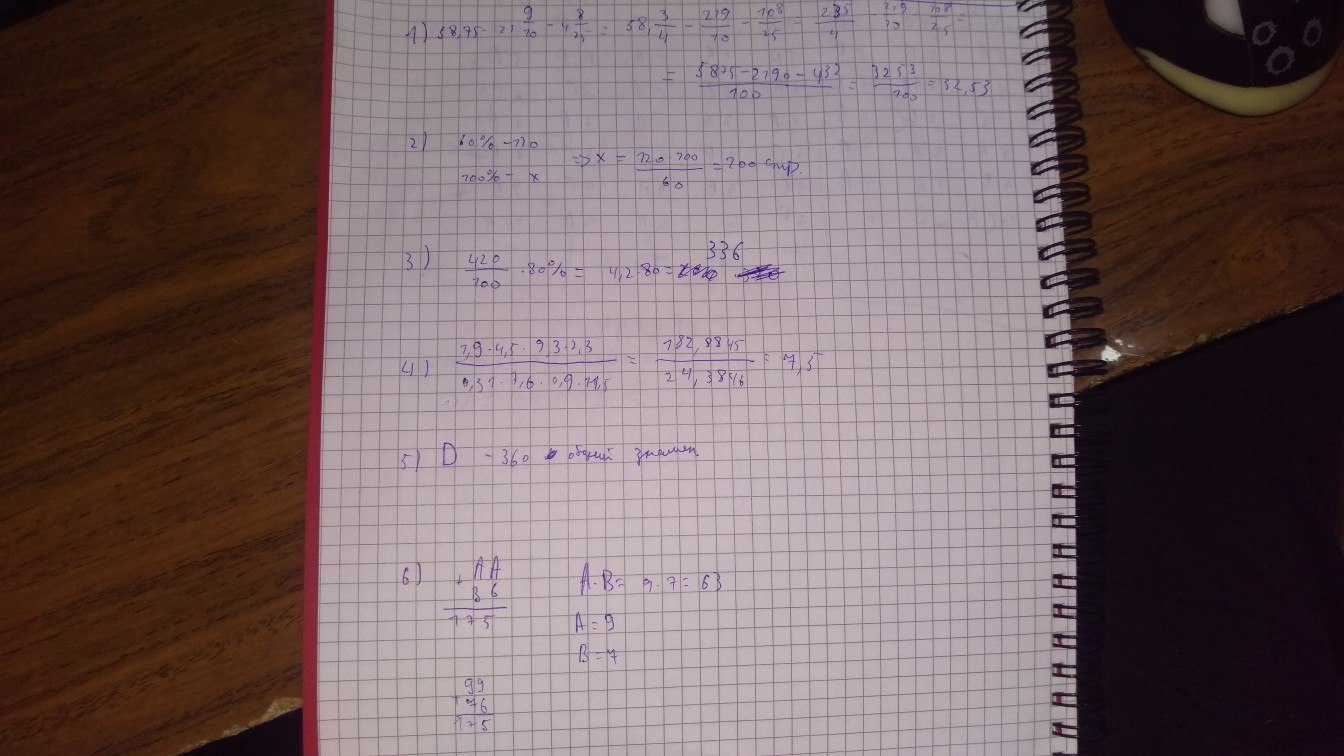 1) 58,75 - 21 9/10 - 4 8/25 = 58, 3/4 - 219/10 - 108/25 = 235/4 - 219/10 - 108/25 =
= 5875-2190-432/100 = 3253/100 = 32,53
2) 60% - 120
100% - x
=> x = 120·100/60 = 200 стр.
3) 420/100 · 80% = 4,2·80 = 336
4) 1,9·4,5·9,3·2,3/0,31·7,6·0,9·11,5 = 182,8845/24,3846 = 7,5
5) D - 360 общий знамен.
6) + AA
B6
175
A·B = 9·7 = 63
A = 9
B = 7
99
+ 76
175